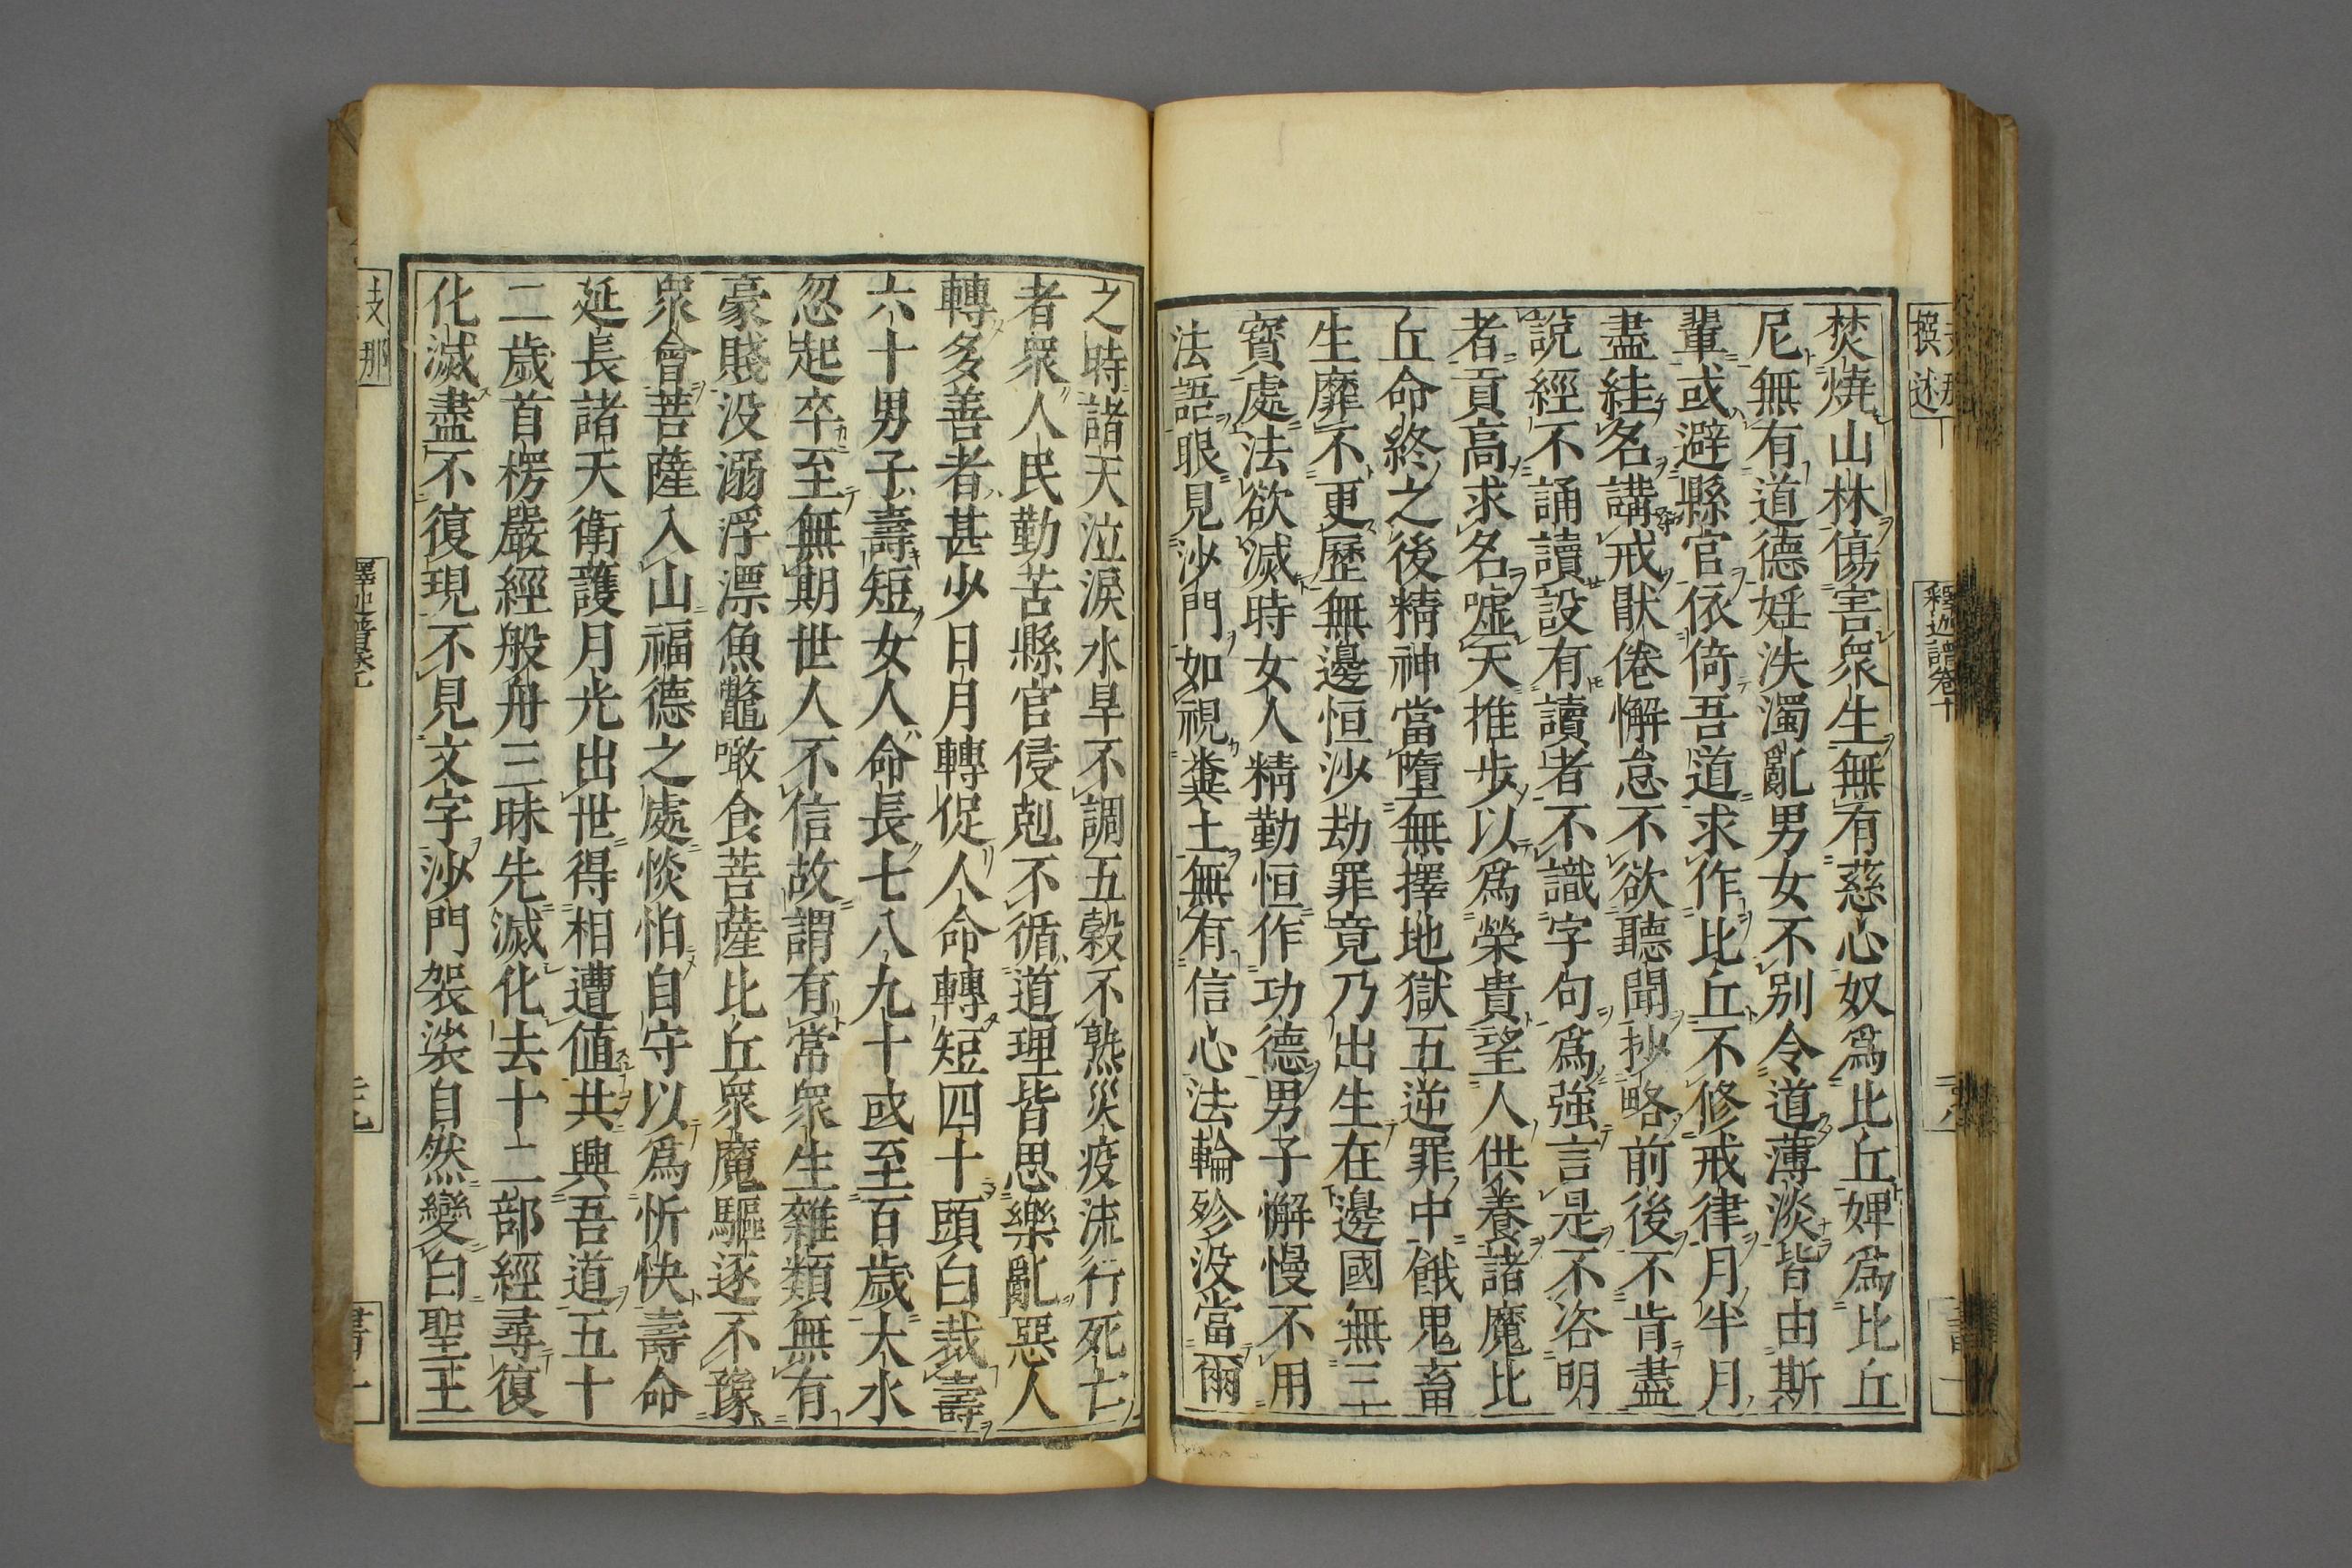 焚燒山林傷害眾生無有慈心奴爲比丘婢爲比丘
尼無有道德婬泆濁亂男女不别令道薄淡皆由斯
輩或避縣官依倚吾道求作比丘不修戒律月半月
盡絓名講戒猒倦懈怠不欲聽聞抄略前後不肯盡
說經不誦讀設有讀者不識字句爲強言是不咨明
者貢高求名噓天推步以爲榮貴望人供養諸魔比
丘命終之後精神當墮無擇地獄五逆罪中餓鬼畜
生靡不更歷無邊恒沙劫罪竟乃出生在邊國無三
寳處法欲滅時女人精勤恒作功德男子懈慢不用
法語眼見沙門如視糞土無有信心法輪殄没當爾
之時諸天泣淚水旱不調五穀不熟災疫流行死亡
者眾人民勤苦縣官侵剋不循道理皆思樂亂惡人
轉多善者甚少日月轉促人命轉短四十頭白裁壽
六十男子壽短女人命長七八九十或至百歲大水
忽起卒至無期世人不信故謂有常眾生雜類無有
豪賤没溺浮漂魚鼈噉食菩薩比丘眾魔驅逐不豫
眾會菩薩入山福德之處惔怕自守以爲忻快壽命
延長諸天衛護月光出世得相遭値共興吾道五十
二歲首楞嚴經般舟三昧先滅化去十二部經尋復
化滅盡不復現不見文字沙門袈裟自然變白聖王
釋迦譜卷十